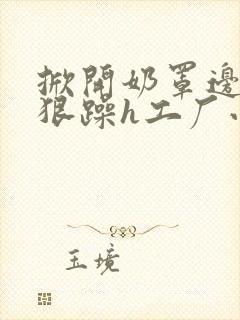 掀開奶罩邊
狠躁h工厂
玉境